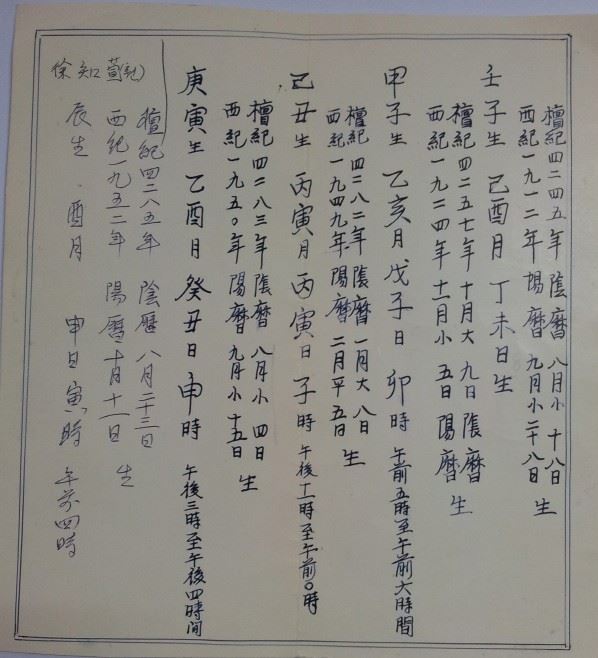 檀紀四二四五年 陰曆 八月小 十八日
西紀一九一二年 陽曆 九月小二十八日 生
壬子生 己酉月 丁未日生
檀紀四二五七年 十月大 九日 陰曆
西紀一九二四年 十一月小 五日 陽曆 生
甲子生 乙亥月 戊子日 卯時 午前五時至午前六時間
檀紀四二八二年 陰曆 一月大 八日
西紀一九四九年 陽曆 二月平 五日 生
己丑生 丙寅月 丙寅日 子時 午後十一時至午前0時
檀紀四二八三年 陰曆 八月小 四日
西紀一九五0年 陽曆 九月小 十五日 生
庚寅生 乙酉月 癸丑日 申時 午後三時至午後四時間
徐知萱
檀紀四二八五年 陰曆 八月二十三日
西紀一九五二年 陽曆 十月十一日 生
辰生 酉月 申日 寅時 午前四時